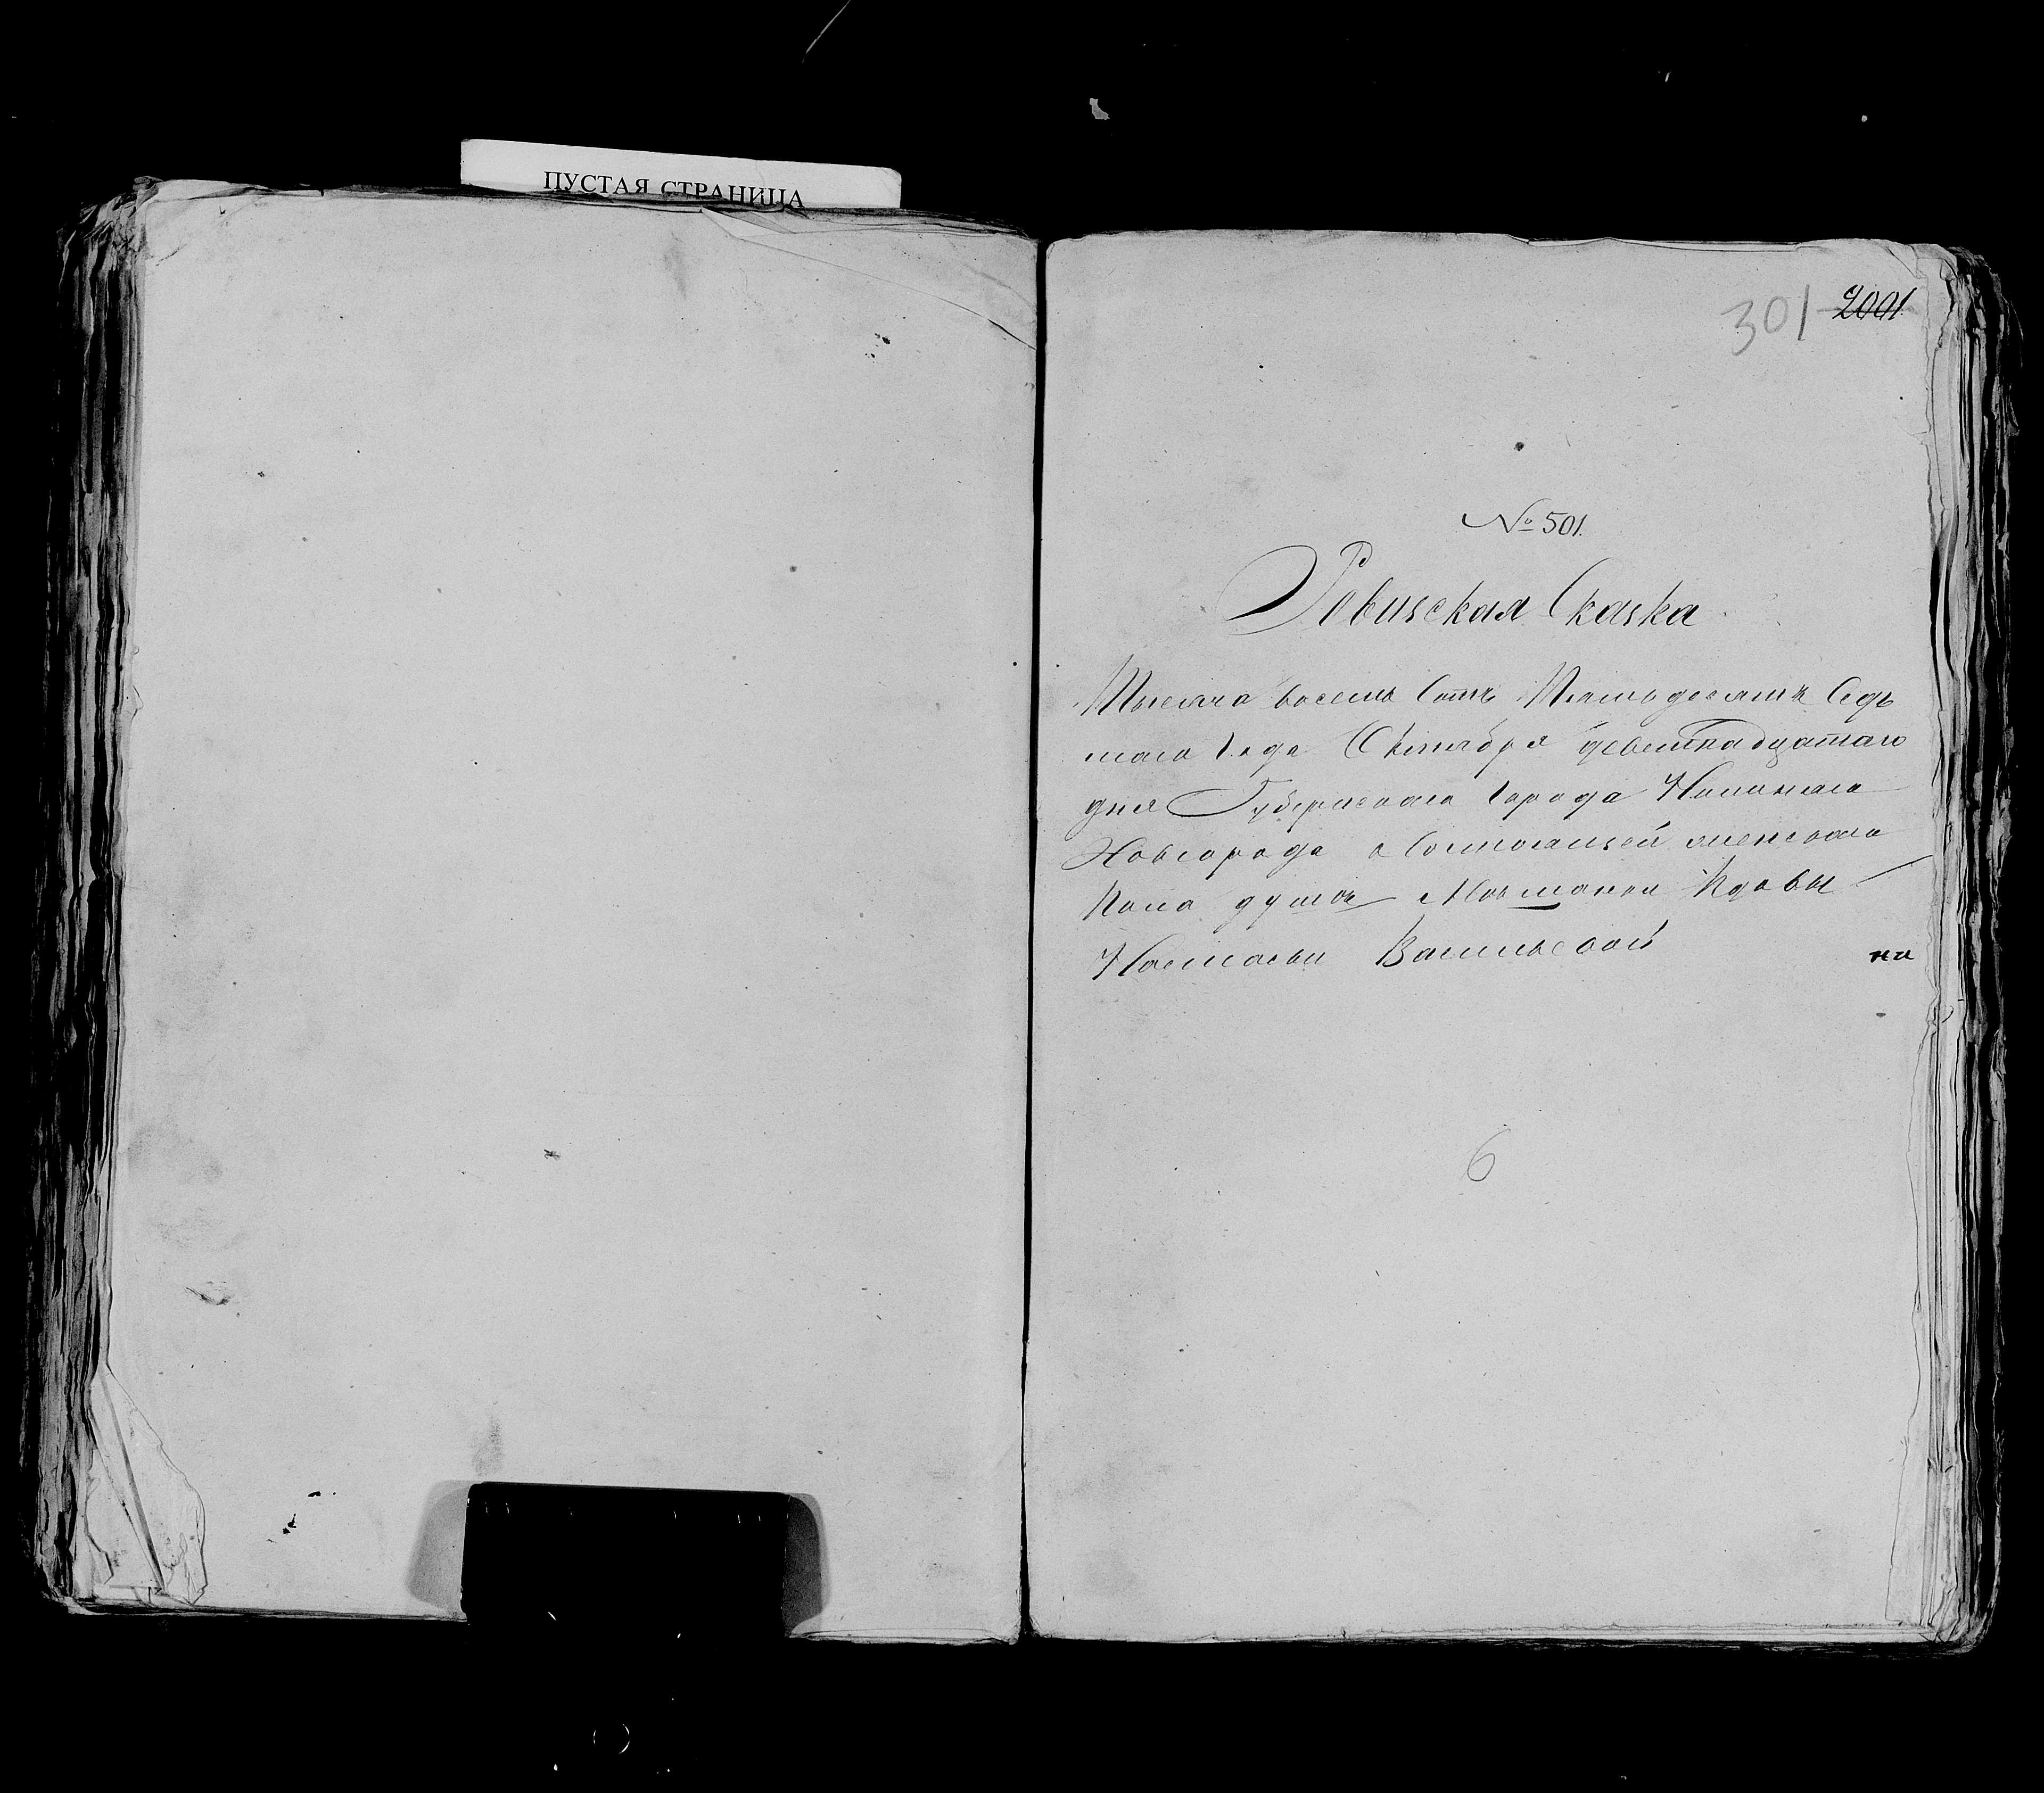 ПУСТАЯ СТРАНИЦА
301 2001.
№ 501.
Ревизская Сказка
Тысяча восемь сотъ Пятьдесятъ Седь
маго Года Октября девятнадцатаго
дня Губернскаго города Нижняго
Новгорода о состоящей женскаго
Пола душе Мещанки Вдовы
Настасьи Васильевой
на
6